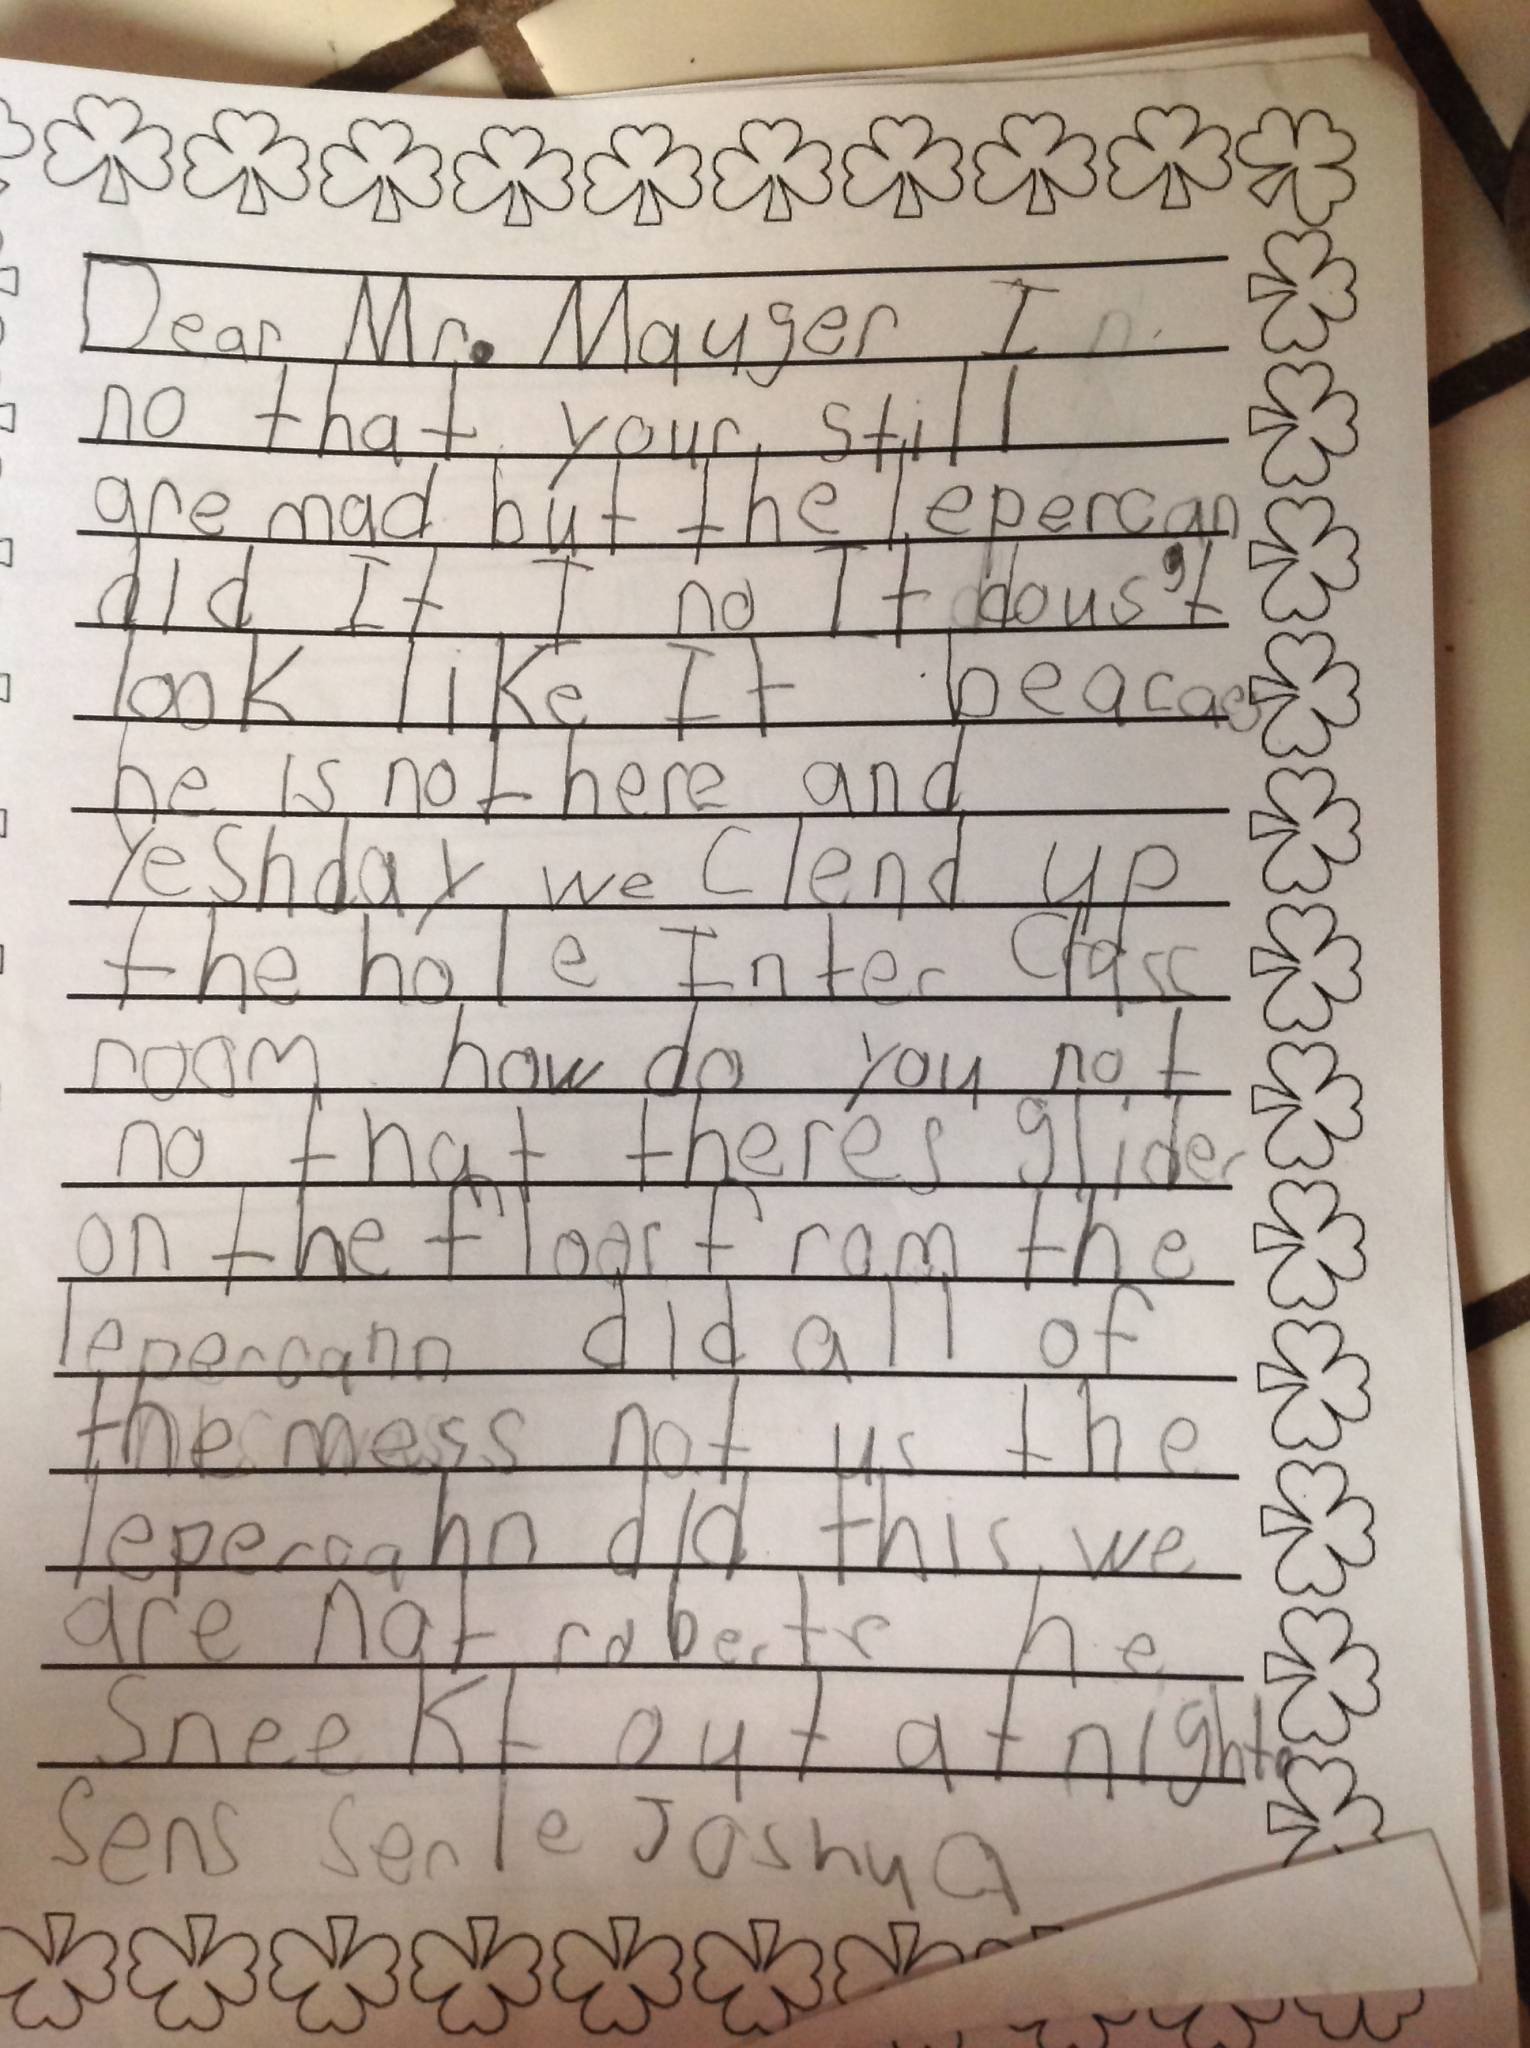 Dear Mr. Mauger I
no that your still
are mad but the lepercan
did It I no It dous't
look like It beacas
he is not here and
Yeshday we Clend up
the hole Inter Class
room how do you not
no that theres glider
on the floor fram the
lepercann did all of
the mess not us the
lepercahn did this we
are not robertr he
Sneekt out at night
Sens serle Joshua